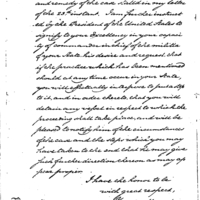 and remedy of the case stated in my letter
of the 23d instant. I am further instruct-
ed by the President of the United States to
signify to your Excellency, in your capaci-
ty of commander-in-chief of the militia
of your State his desire and request that
if the practice which has been mentioned
should at any time occur in your State,
you will effectually interpose to put a stop
to it, and in order thereto, that you will
detain any vessel in respect to which the
proceeding shall take place, and will be
pleased to notify him of the circumstances
of the case and the steps which you may
have taken to the end that he may give
such further direction thereon as may ap-
pear proper.
I have the honor to be
with great respect,